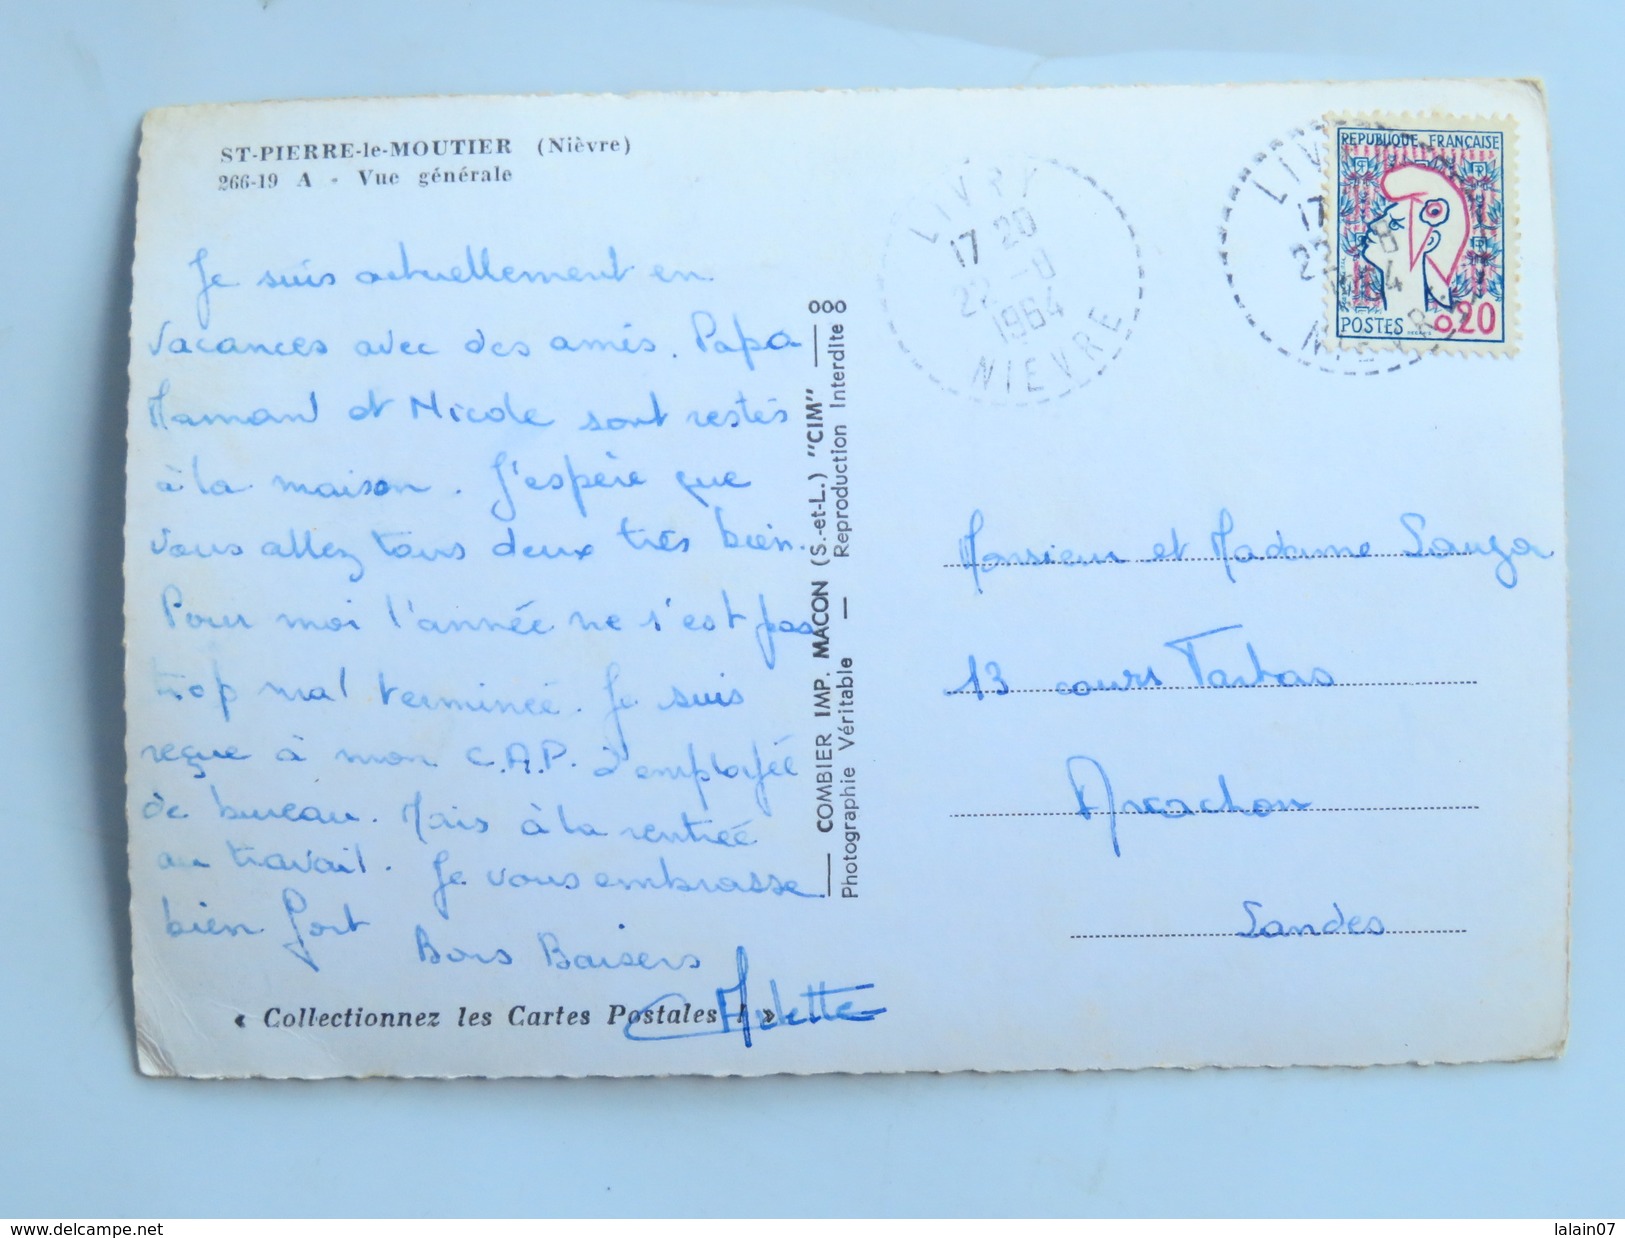 ST-PIERRE-le-MOUTIER (Nièvre)
266-19 A - Vue générale
Je suis actuellement en
vacances avec des amis. Papa
Maman et Nicole sont restés
à la maison. J'espère que
vous allez tous deux très bien.
Pour moi l'année ne s'est pas
trop mal terminée. Je suis
reçue à mon C.A.P. d'employée
de bureau. Mais à la rentrée
au travail. Je vous embrasse
bien fort
Bons Baisers
Arlette
« Collectionnez les Cartes Postales ! »
COMBIER IMP. MACON (S.-et-L.) "CIM"
Photographie Véritable — Reproduction Interdite
LIVRY
17 20
22 -8
1964
NIEVRE
LIV
17
22 8
1964
NIEVR
REPUBLIQUE FRANÇAISE
POSTES 0,20
Monsieur et Madame
13 cours Tartas
Arcachon
Landes
www.delcampe.net
lalain07